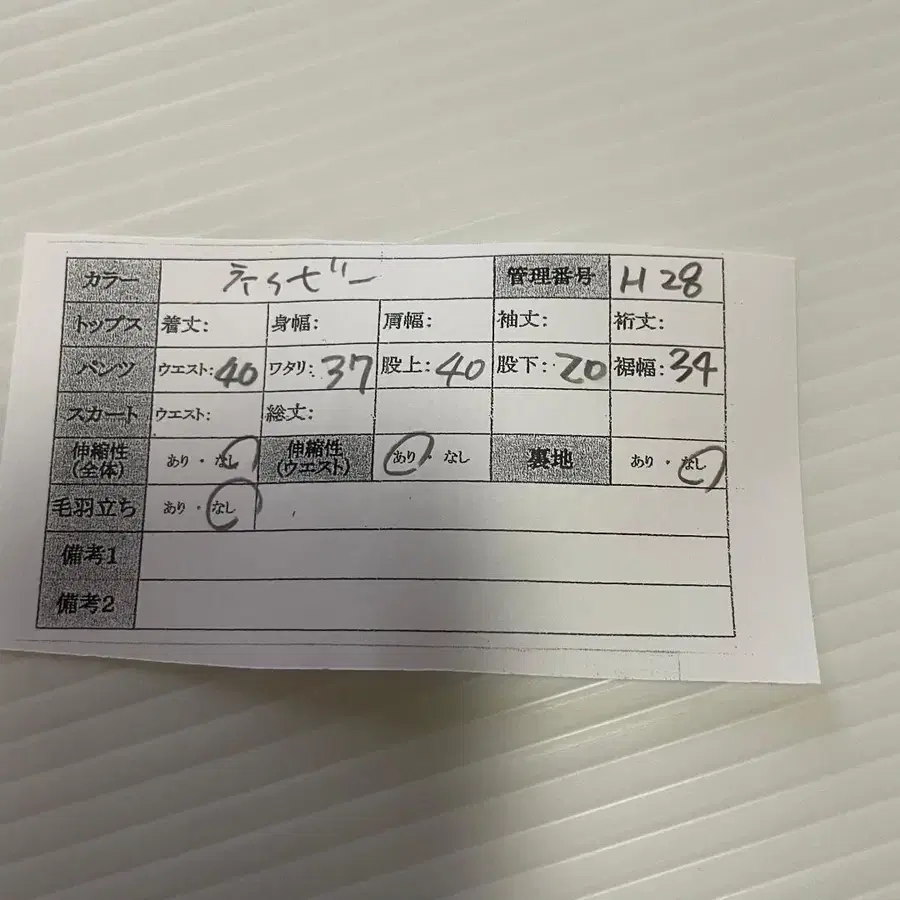 カラー 管理番号 H28
トップス 着丈: 身幅: 肩幅: 袖丈: 裄丈:
パンツ ウエスト:40 ワタリ:37 股上:40 股下:20 裾幅:34
スカート ウエスト: 総丈:
伸縮性(全体) あり・なし 伸縮性(ウエスト) あり・なし 裏地 あり・なし
毛羽立ち あり・なし
備考1
備考2